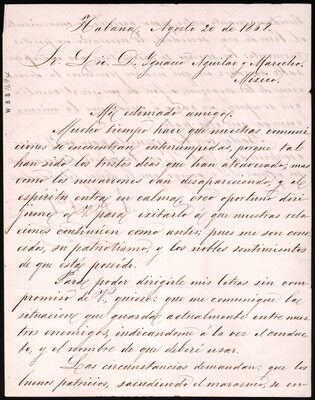 Habana, Agosto 20 de 1858.
Sr. Lic. D. Ignacio Aguilar y Marocho.
México.
Mi estimado amigo.
Mucho tiempo hace que nuestras comuni-
caciones se encuentran interrumpidas, porque tal
han sido los tristes dias que han atravezado; mas
como los nuvarrones van desapareciendo, y el
espíritu entra en calma, creo oportuno diri-
jirme á V. para exitarlo á que nuestras rela-
ciones continúen como antes; pues me son cono-
cidos, su patriotismo, y los nobles sentimientos
de que está poseido.
Para poder dirigirle mis letras sin com-
promiso de V. quiero: que me comunique la
situacion que guarda actualmente entre nues-
tros enemigos, indicandome á la vez el conduc-
to, y el nombre de que deberé usar.
Las circunstancias demandan: que los
buenos patricios, sacudiendo el marasmo, se en
W B S